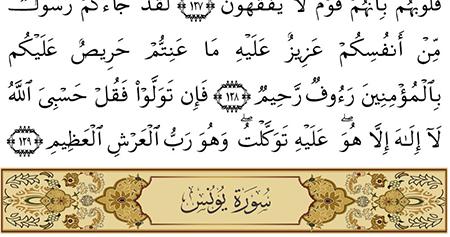 قُلُوبَهُم بِأَنَّهُمْ قَوْمٌ لَّا يَفْقَهُونَ ﴿١٢٧﴾ لَقَدْ جَآءَكُمْ رَسُولٌ
مِّنْ أَنفُسِكُمْ عَزِيزٌ عَلَيْهِ مَا عَنِتُّمْ حَرِيصٌ عَلَيْكُم
بِٱلْمُؤْمِنِينَ رَءُوفٌ رَّحِيمٌ ﴿١٢٨﴾ فَإِن تَوَلَّوْا۟ فَقُلْ حَسْبِىَ ٱللَّهُ
لَآ إِلَـٰهَ إِلَّا هُوَ ۖ عَلَيْهِ تَوَكَّلْتُ ۖ وَهُوَ رَبُّ ٱلْعَرْشِ ٱلْعَظِيمِ ﴿١٢٩﴾
سُورَةُ يُونُسَ